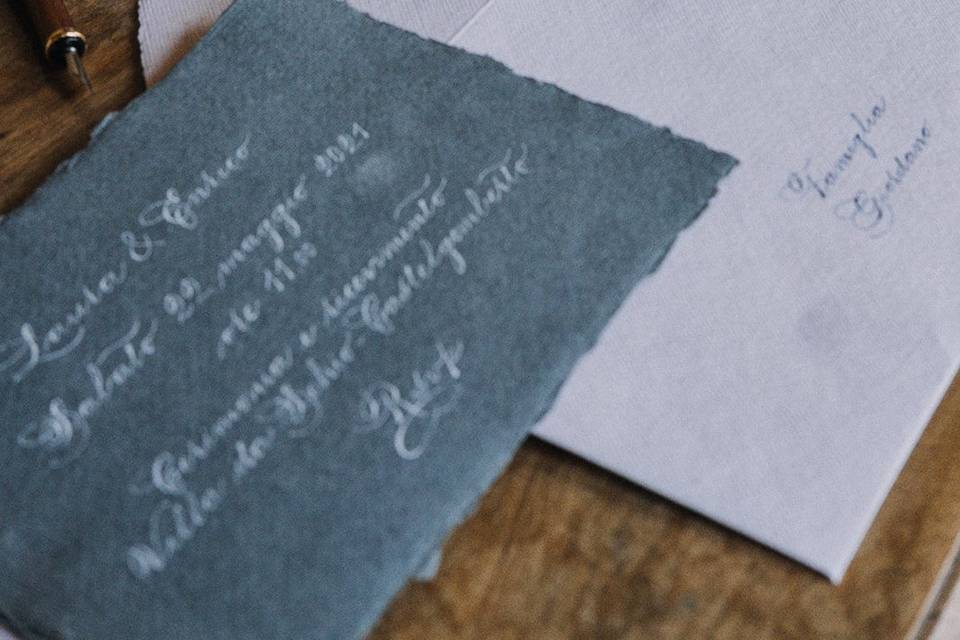 Laura & Enrico
Sabato 22 maggio 2021
ore 11,00
Cerimonia e ricevimento
Villa da Schio-Castelgomberto
Rsvp
Famiglia
Giordano